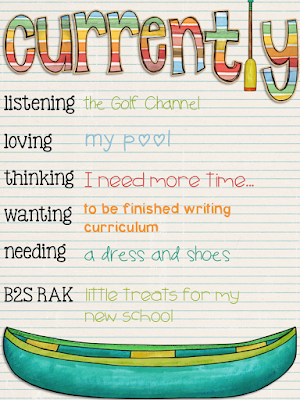 currently
listening the Golf Channel
loving my pool
thinking I need more time...
wanting to be finished writing
curriculum
needing a dress and shoes
B2S RAK little treats for my
new school